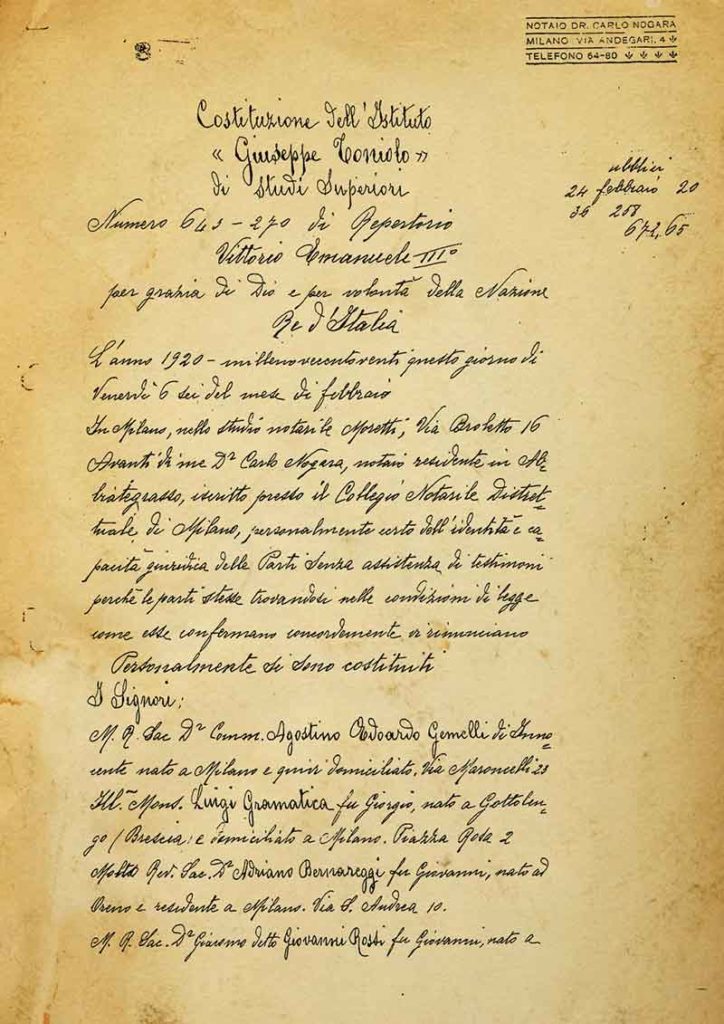 NOTAIO DR. CARLO NOGARA
MILANO VIA ANDEGARI, 4
TELEFONO 64-80
Costituzione dell'Istituto
« Giuseppe Toniolo »
di Studi Superiori
24 febbraio 20
36 258
672,65
Numero 643 - 270 di Repertorio
Vittorio Emanuele III°
per grazia di Dio e per volontà della Nazione
Re d'Italia
L'anno 1920 - millenovecentoventi questo giorno di
Venerdì 6 sei del mese di febbraio
In Milano, nello studio notarile Moretti, Via Broletto 16
Avanti di me Dr Carlo Nogara, notaio residente in Ab-
biategrasso, iscritto presso il Collegio Notarile Distret-
tuale di Milano, personalmente certo dell'identità e ca-
pacità giuridica delle Parti senza assistenza di testimoni
perchè le parti stesse trovandosi nelle condizioni di legge
come esse confermano concordemente vi rinunciano
Personalmente si sono costituiti
I Signori:
M. R. Sac Dr Comm. Agostino Edoardo Gemelli di Inno-
cente nato a Milano e quivi domiciliato, Via Maroncelli 23
Ill.mo Mons. Luigi Gramatica fu Giorgio, nato a Gottolen-
go (Brescia) e domiciliato a Milano. Piazza Rosa 2
Molto Rev. Sac. Dr Adriano Bernareggi fu Giovanni, nato ad
Oreno e residente a Milano. Via S. Andrea 10.
M. R. Sac. Dr Giacomo detto Giovanni Rossi fu Giovanni, nato a